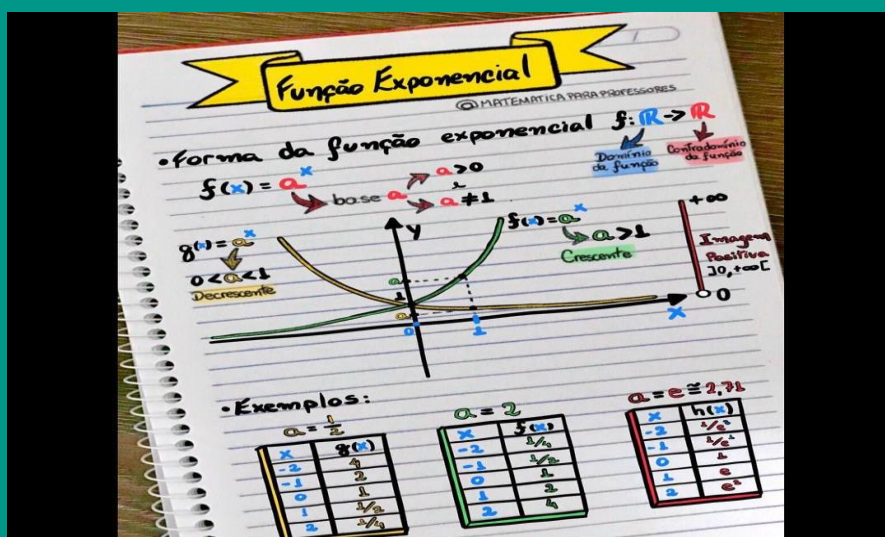 Função Exponencial
@MATEMATICA PARA PROFESSORES
• Forma da função exponencial f: ℝ -> ℝ
Domínio da função
Contradomínio da função
f(x) = a^x
base a
a > 0
e
a ≠ 1
g(x) = a^x
0 < a < 1
Decrescente
y
f(x) = a^x
a > 1
Crescente
+∞
Imagem
Positiva
]0, +∞[
0
a
1
a
0
1
x
• Exemplos:
a = 1/2
x g(x)
-2 4
-1 2
0 1
1 1/2
2 1/4
a = 2
x f(x)
-2 1/4
-1 1/2
0 1
1 2
2 4
a = e ≅ 2,71
x h(x)
-2 1/e²
-1 1/e
0 1
1 e
2 e²